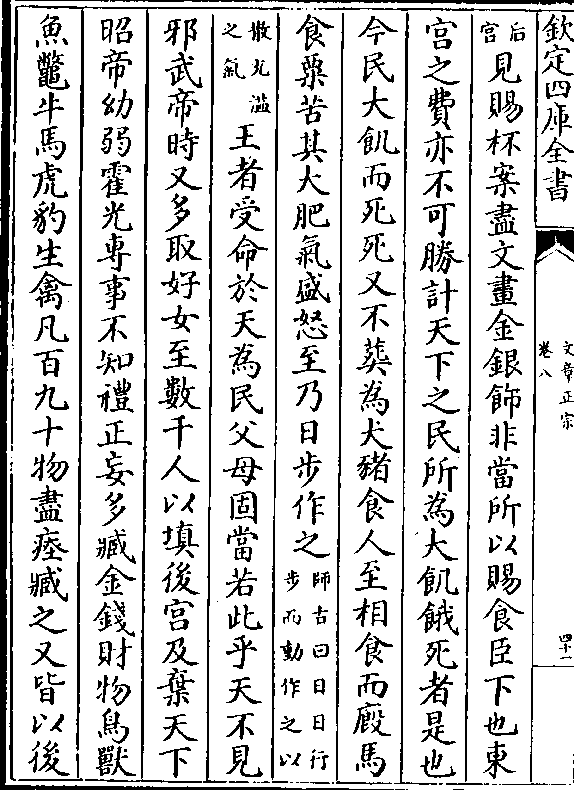 欽定四庫全書
文章正宗
卷八
四十一
后宮見賜杯案盡文畫金銀飾非當所以賜食臣下也東
宫之費亦不可勝計天下之民所為大飢餓死者是也
今民大飢而死死又不葬為犬豬食人至相食而廄馬
食粟苦其大肥氣盛怒至乃日步作之師古曰日日行步而動作之以
散充溢之氣王者受命於天為民父母固當若此乎天不見
邪武帝時又多取好女至數千人以填後宫及棄天下
昭帝幼弱霍光專事不知禮正妄多臧金錢財物鳥獸
魚鼈牛馬虎豹生禽凡百九十物盡瘞臧之又皆以後